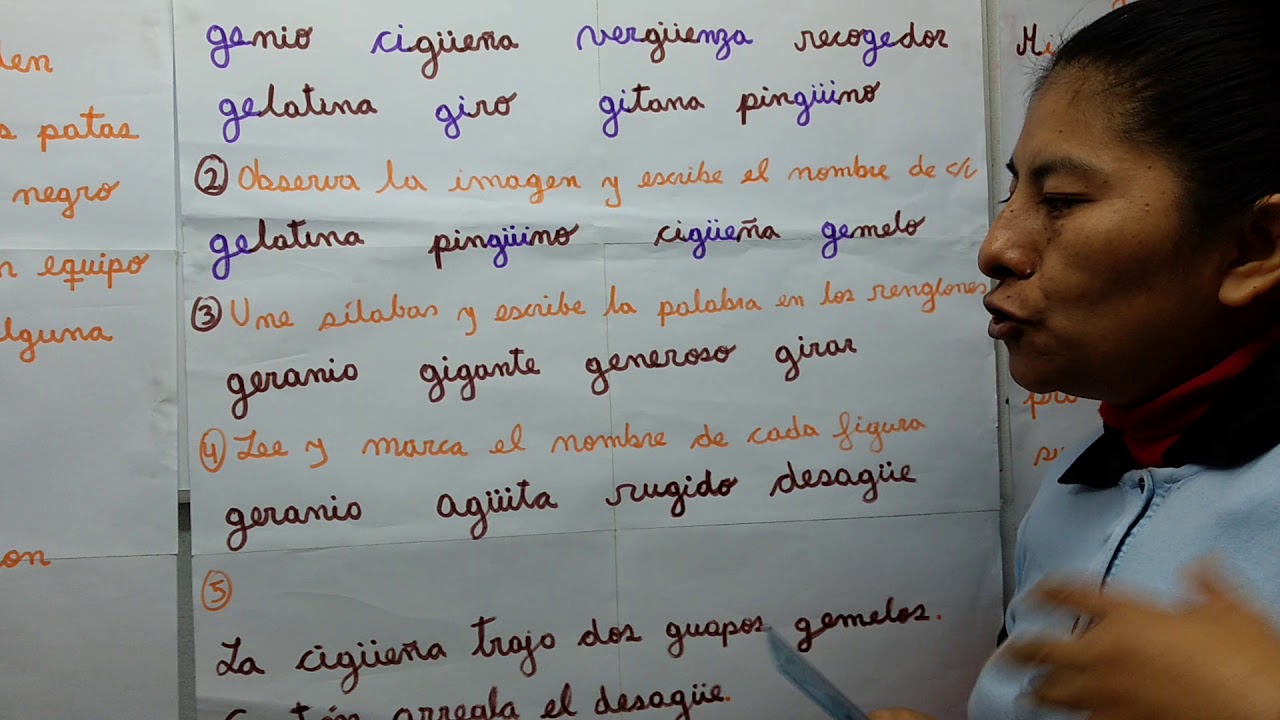 den
s patas
negro
n equipo
lguna
on
genio cigüeña vergüenza recogedor
gelatina giro gitana pingüino
2 Observa la imagen y escribe el nombre de c/u
gelatina pingüino cigüeña gemelo
3 Une sílabas y escribe la palabra en los renglones
geranio gigante generoso girar
4 Lee y marca el nombre de cada figura
geranio agüita rugido desagüe
5
La cigüeña trajo dos guapos gemelos.
arregla el desagüe.